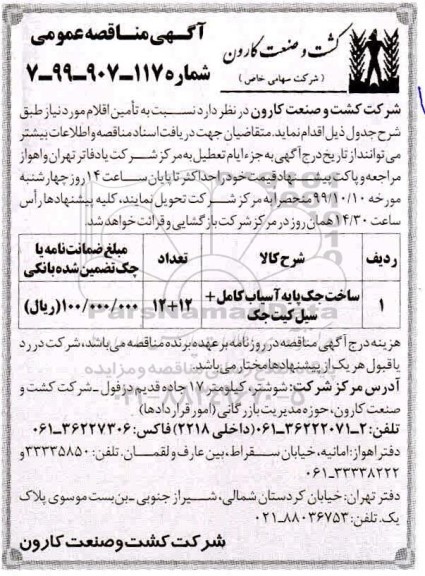 کشت و صنعت کارون
( شرکت سهامی خاص )
آگهی مناقصه عمومی
شماره ۱۱۷-۹۰۷-۹۹-۷
شرکت کشت و صنعت کارون در نظر دارد نسبت به تأمین اقلام مورد نیاز طبق
شرح جدول ذیل اقدام نماید. متقاضیان جهت دریافت اسناد مناقصه و اطلاعات بیشتر
می‌توانند از تاریخ درج آگهی به جزء ایام تعطیل به مرکز شرکت یا دفاتر تهران و اهواز
مراجعه و پاکت پیشنهاد قیمت خود را حداکثر تا پایان ساعت ۱۴ روز چهارشنبه
مورخه ۹۹/۱۰/۱۰ منحصرا به مرکز شرکت تحویل نمایند، کلیه پیشنهادها رأس
ساعت ۱۴/۳۰ همان روز در مرکز شرکت بازگشایی و قرائت خواهد شد.
ردیف شرح کالا تعداد مبلغ ضمانت نامه یا چک تضمین شده بانکی
۱ ساخت جک پایه آسیاب کامل + سیل کیت جک ۱۲+۱۲ ۱۰۰/۰۰۰/۰۰۰ (ریال)
هزینه درج آگهی مناقصه در روزنامه بر عهده برنده مناقصه می‌باشد، شرکت در رد
یا قبول هر یک از پیشنهادها مختار می‌باشد.
آدرس مرکز شرکت: شوشتر، کیلومتر ۱۷ جاده قدیم دزفول - شرکت کشت و
صنعت کارون، حوزه مدیریت بازرگانی (امور قراردادها)
تلفن: ۲-۳۶۲۲۲۰۷۱-۰۶۱ (داخلی ۲۲۱۸) فاکس: ۳۶۲۲۷۳۰۶-۰۶۱
دفتر اهواز: امانیه، خیابان سقراط، بین عارف و لقمان. تلفن: ۳۳۳۳۵۸۵۰ و
۳۳۳۳۸۲۲۲-۰۶۱
دفتر تهران: خیابان کردستان شمالی، شیراز جنوبی - بن بست موسوی پلاک
یک. تلفن: ۸۸۰۳۶۷۵۳-۰۲۱
شرکت کشت و صنعت کارون